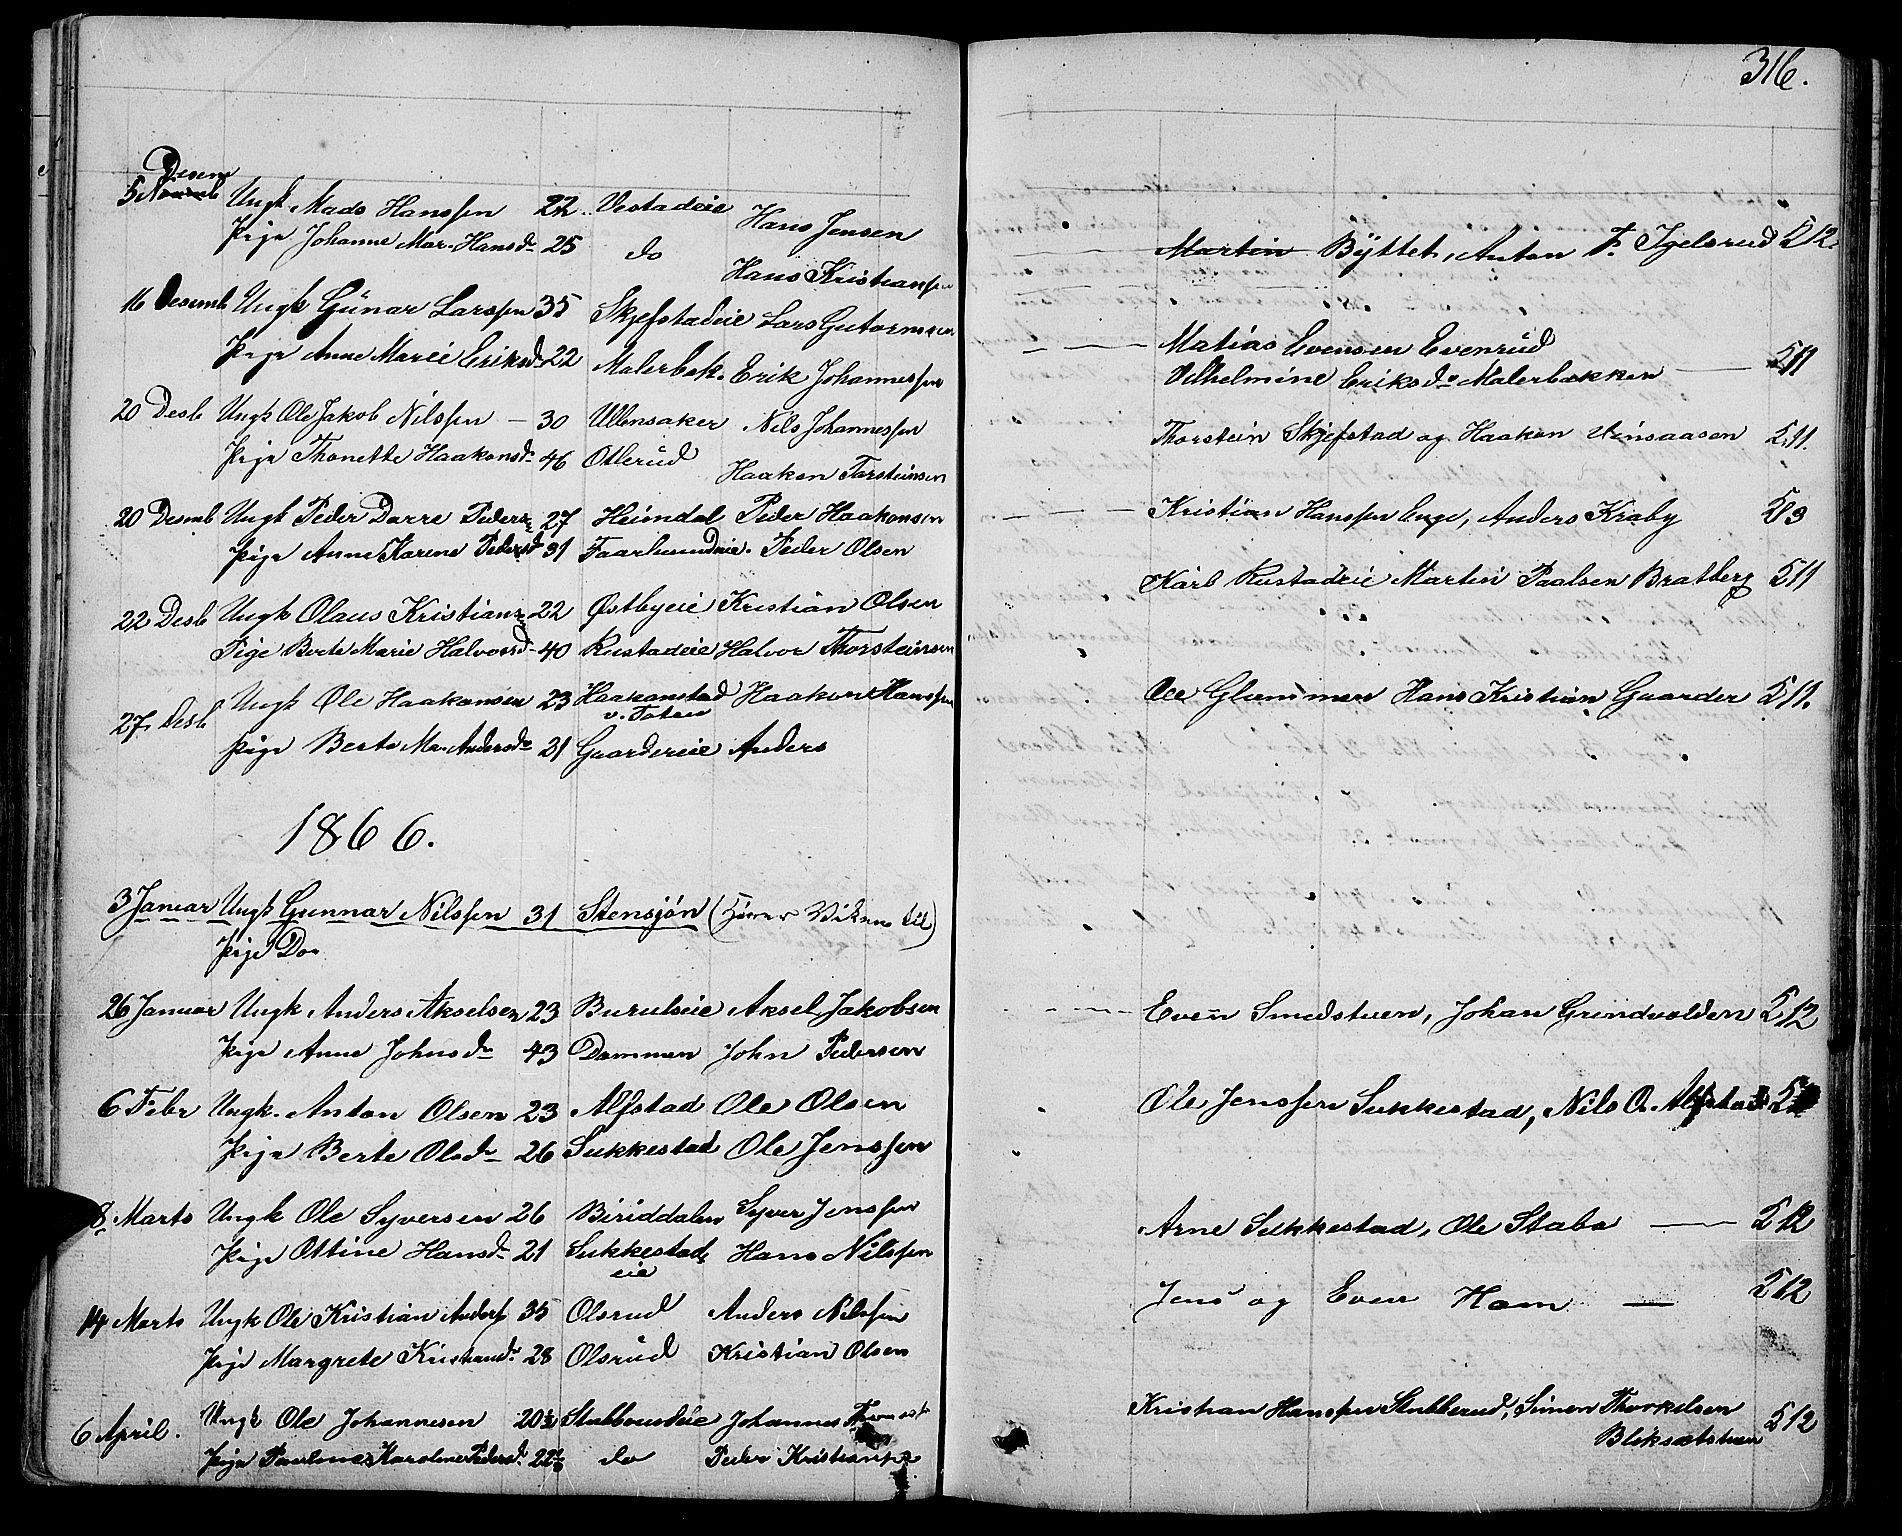 316.
5 Desem Ungk. Mads Hanssen 22 Vestadeie Hans Jensen
Pige Johanne Mar. Hansd. 25 do Hans Kristiansen
Martin Byttet, Anton P. Igelsrud 512.
16 Desemb Ungk Gunar Larssen 35 Skjefstadeie Lars Gutormsen
Pige Anne Marie Eriksd. 22 Malerbak. Erik Johannessen
Matias Evensen Evenrud
Vilhelmine Eriksd. Malerbakken — 511
20 Desb Ungk Ole Jakob Nilssen — 30 Ullensaker Nils Johannessen
Pige Thonette Haakonsd. 46 Otterud Haakon Torsteinsen
Thorstein Skjefstad og Haakon 511.
20 Desmb Ungk Peder Dorre Peders. 27 Heimdal Peder Haakonsen
Pige Anne Karine Pedersd. 31 Faarlundeie. Peder Olsen
Kristian Hanssen Enge, Anders Kraby 513
22 Desb Ungk Olaus Kristians. 22 Østbyeie Kristian Olsen
Pige Berte Marie Halvorsd. 40 Rustadeie Halvor Thorsteinsen
Karl Rustadeie Martin Paalsen Bratberg 511
27 Desb Ungk Ole Haakonsen 23 Haakonstad Haakon Hanssen
v. Toten
Pige Berte Ma. Andersd. 31 Gaardereie Anders
Ole Glemmen Hans Kristian Gaarder 511.
1866.
3 Januar Ungk Gunnar Nilssen 31 Stensjøn (hører Viken til)
Pige Dor
26 Januar Ungk Anders Akselsen 23 Burulseie Aksel Jakobsen
Pige Anne Johnsd. 43 Dammen John Pedersen
Even Smedstuen, Johan Grindvolden 512
6 Febr Ungk. Anton Olsen 23 Alfstad Ole Olsen
Pige Berte Olsd. 26 Sukkestad Ole Jenssen
Ole Jenssen Sukkestad, Nils O. Alfstad
8 Marts Ungk Ole Syversen 26 Biriddalen Syver Jenssen
Pige Ottine Hansd. 21 Sukkestad Hans Nilssen
eie
Arne Sukkestad, Ole Stabo — 512
14 Marts Ungk Ole Kristian Anders 35 Olsrud Anders Nilssen
Pige Margrete Kristiansd. 28 Olsrud Kristian Olsen
Jens og Even Hom — 512
6 April. Ungk Ole Johannesen 20½ Stubberudeie Johannes
Pige Pauline Karoline Pedersd. 22½ do Peder Kristiansen
Kristian Hanssen Stubberud, Simon Thorkelsen
Bliksætstuen 512